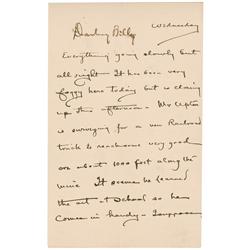 Wednesday
Darling Billy
Everything going slowly but
all right. It has been very
foggy here today but is clearing
up this afternoon - Mr Upton
is surveying for a new Railroad
track to reach some very good
ore about 1000 feet along the
mine. It seems he learned
the art at School so he
comes in handy - I suppose